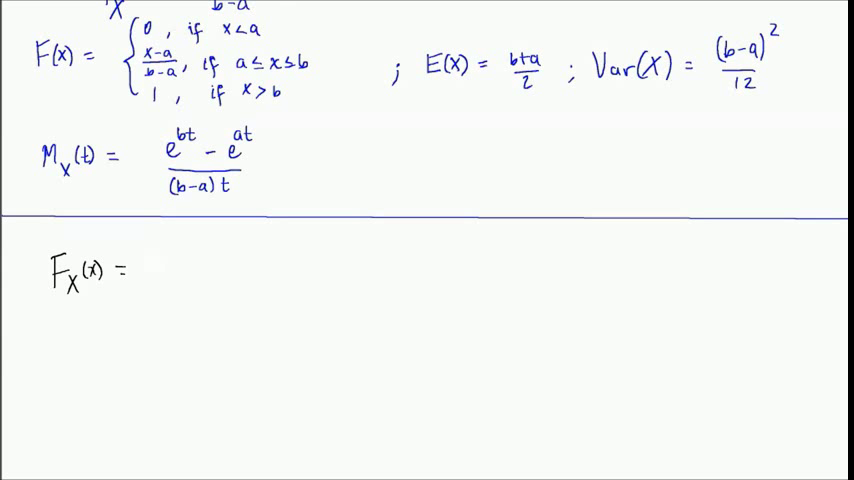 X b-a
F(x) = { 0 , if x<a
x-a/b-a, if a≤x≤b ; E(X) = b+a/2 ; Var(X) = (b-a)²/12
1 , if x>b
M_X(t) = e^bt - e^at / (b-a)t
F_X(x) =